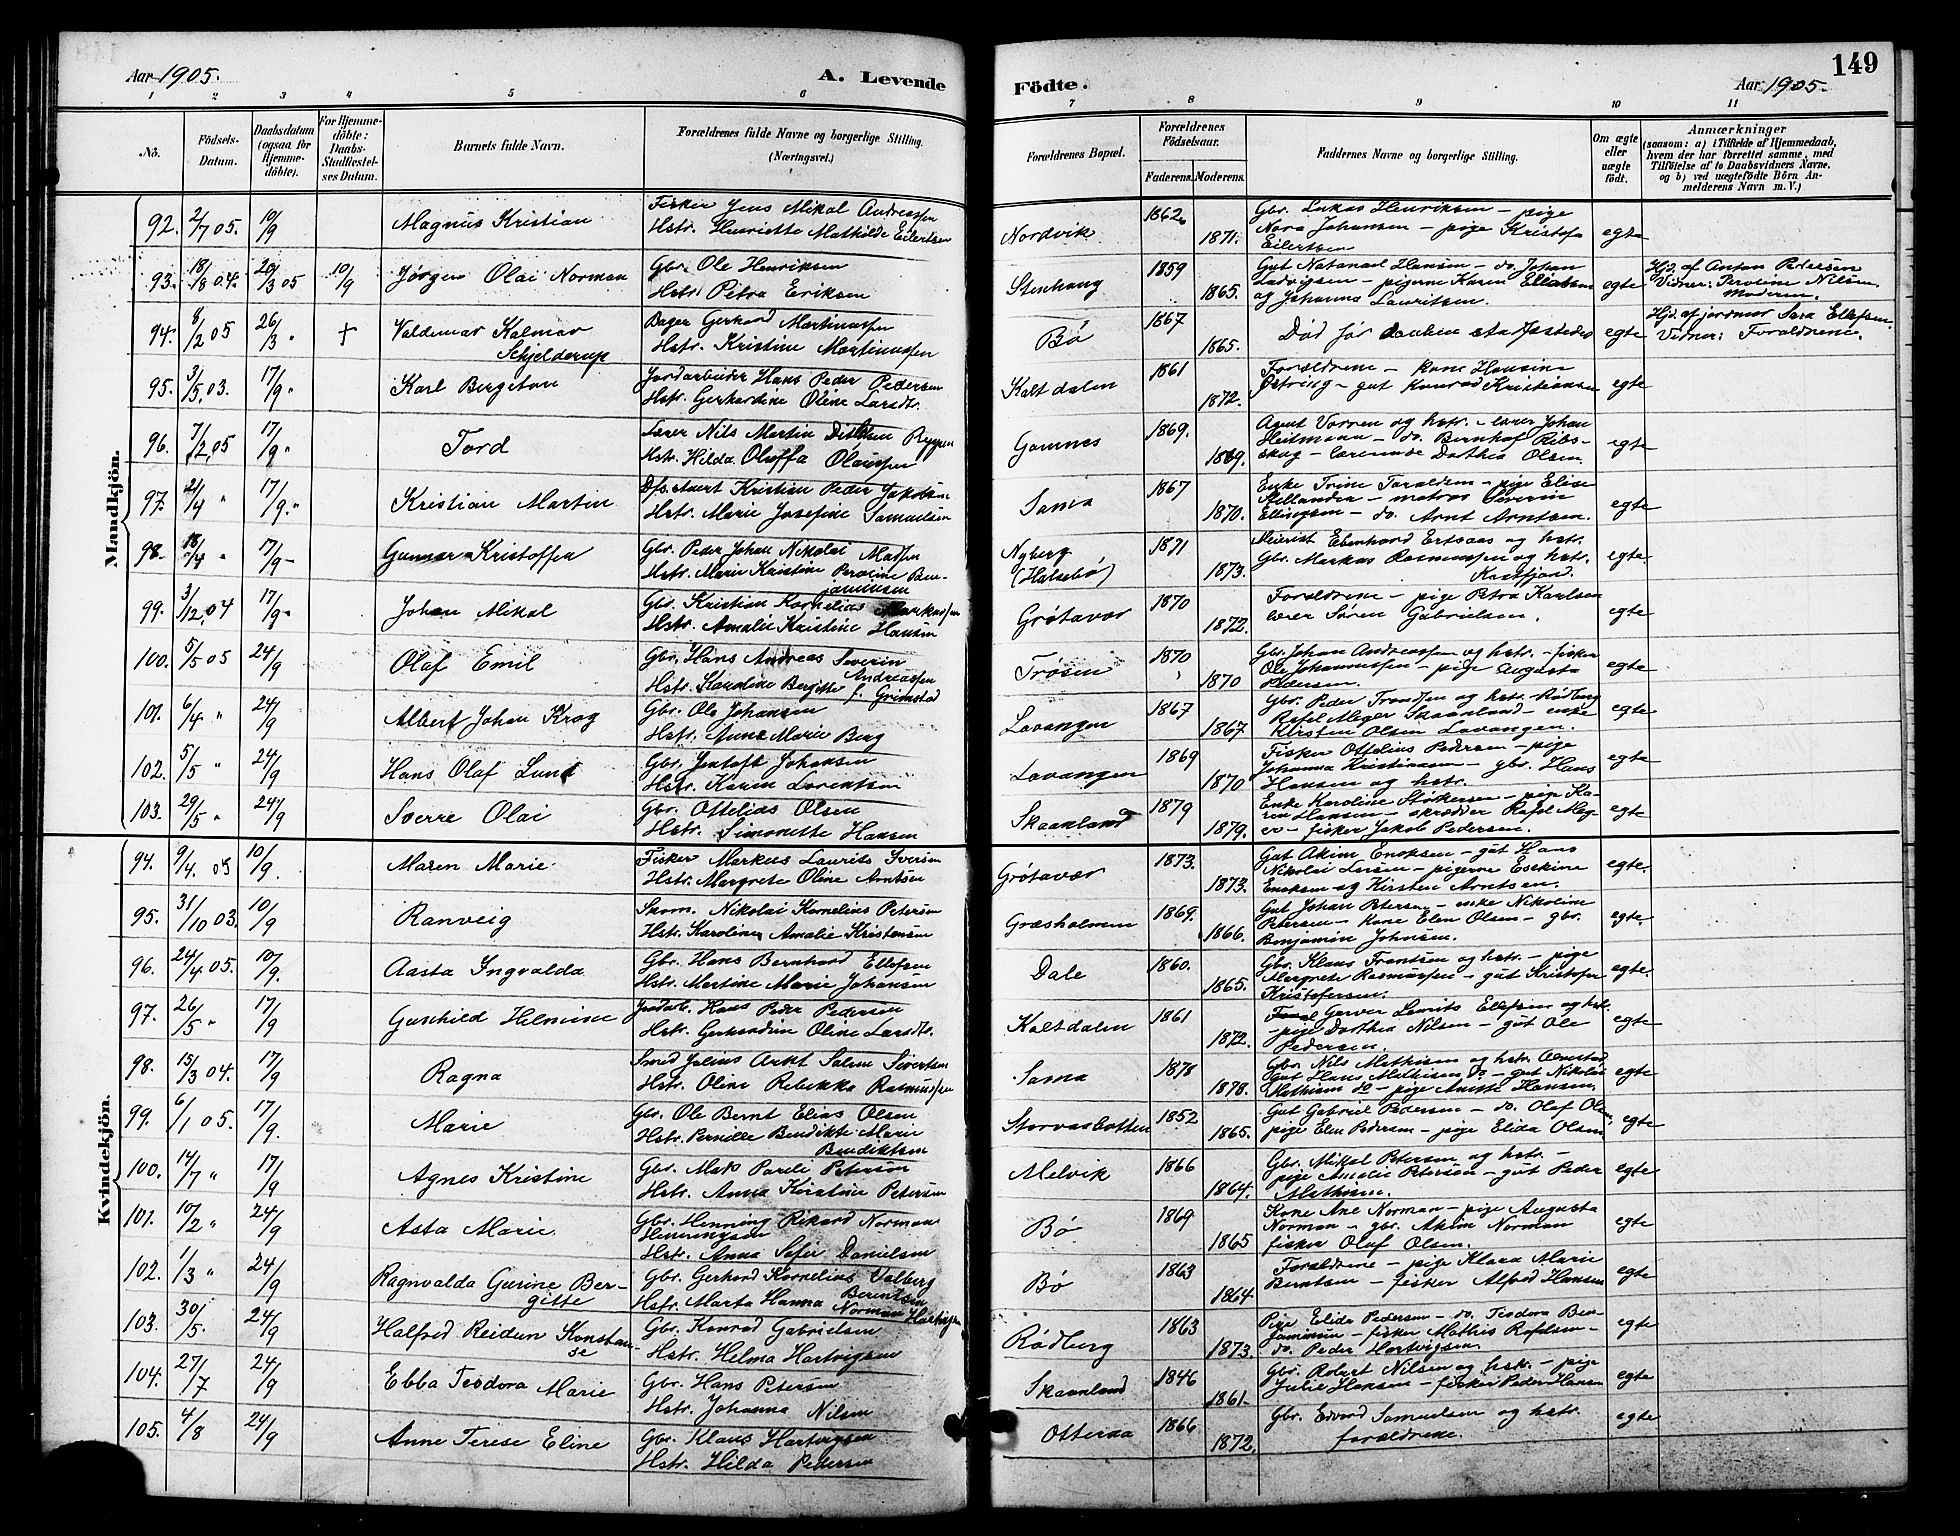 149
Aar 1905.
A. Levende
Födte.
Aar 1905.
1 2 3 4 5 6 7 8 9 10 11
Nö.
Födsels-
Datum.
Daabsdatum
(ogsaa for
Hjemme-
döbte).
For Hjemme-
döbte:
Daabs-
Stadfæstel-
ses Datum.
Barnets fulde Navn.
Forældrenes fulde Navne og borgerlige Stilling.
(Næringsvei.)
Forældrenes Bopæl.
Forældrenes
Födselsaar.
Faderens. Moderens.
Faddernes Navne og borgerlige Stilling.
Om ægte
eller
uægte
født.
Anmærkninger
(saasom: a) i Tilfælde af Hjemmedaab,
hvem der har forrettet samme, med
Tilföielse af to Daabsvidners Navne,
og b) ved uægtefödte Börn An-
melderens Navn m. V.)
Mandkjön.
92. 2/7 05. 10/9 Magnus Kristian
Fisker Jens Mikal Andreassen
Hstr. Henriette Mathilde Eilertsen
Nordvik 1862 1871.
Gbr. Lukas Henriksen – pige
Nora Johansen – pige Kristofa
Eilertsen
egte
93. 18/8 04. 20/3 05 10/9 Jørgen Olai Norman
Gbr. Ole Henriksen
Hstr. Petra Eriksen
Stenhaug 1859 1865.
Gut Natanael Hansen – do. Johan
Ludvigsen – pigerne Karen
og Johanna Lauritsen.
egte
Hjd. af Anton Pedersen
Vidner: Peroline Nilsen
Moderen.
94. 8/2 05 26/3 " † Valdemar Kalmar
Schjelderup
Bager Gerhard Martinussen
Hstr. Kristine Martinussen
Bø 1867 1865.
Død før daaben stadfæstedes
egte
Hjd. af jordmor Sara Ellefsen
Vidner: Forældrene.
95. 3/5 03. 17/9 " Karl Bergiton
Jordarbeider Hans Peder Pedersen
Hstr. Gerhardine Oline Larsdtr.
Kaltdalen 1861 1872.
Forældrene – kone Hansine
Østring – gut Konrad Kristiansen
egte
96. 7/2 05 17/9 " Tord
Lærer Nils Martin Ditlefsen Ryggen
Hstr. Hilda Oluffa Olaussen
Gamnes 1869. 1869.
Agent Vorren og hstr. – lærer Johan
Heitmann – do. Bernhof Ribs-
skog – lærerinde Dorthea Olsen.
egte
97. 2/4 " 17/9 " Kristian Martin
Kristian Peder Jakobsen
Hstr. Marie Josefine Samuelsen
Sama 1867 1870.
Enke Trine Toraldsen – pige Elise
Mellander – matros Severin
Ellingsen – do. Arnt Arntsen.
egte
98. 18/4 " 17/9 – Gunnar Kristoffer
Gbr. Peder Johan Nikolai Madsen
Hstr. Marie Kristine Peroline Ben-
jaminsen
Nyberg
(Halsebø) 1871 1873.
Meierist Ebenhard Ertsaas og hstr.
Gbr. Markus Rasmussen og hstr.
Kastfjord.
egte
99. 3/12 04 17/9 " Johan Mikal
Gbr. Kristian Kornelius Markussen
Hstr. Amalie Kristine Hansen
Grøtavær 1870 1872.
Forældrene – pige Petra Karlsen
lærer Søren Gabrielsen.
egte
100. 5/5 05 24/9 Olaf Emil
Gbr. Hans Andreas Severin
Andreassen
Hstr. Karoline Bergitte f. Grimstad
Trøsen 1870 1870
Gbr. Johan Andreassen og hstr. – fisker
Ole Johannessen – pige Augusta
Pedersen.
egte
101. 6/4 " 24/9 Albert Johan Krog
Gbr. Ole Johansen
Hstr. Anne Marie Berg
Lavangen 1867 1867
Gbr. Peder Trondsen og hstr. Rødberg
Rafel Meyer Skaanland – enke
Kirsten Olsen Lavangen.
egte
102. 5/5 " 24/9 Hans Olaf Lund
Gbr. Jentoft Johansen
Hstr. Karen Lorentsen
Lavangen 1869 1870
Fisker Ottelius Pedersen – pige
Johanna Kristiansen – gbr. Hans
Hansen og hstr.
egte
103. 29/5 " 24/9 Sverre Olai
Gbr. Ottelias Olsen
Hstr. Simonette Hansen
Skaanland 1879 1879.
Enke Karoline Størkersen – pige Ka-
ren Hansen – skrædder Rafel Mey-
er – fisker Jakob Pedersen.
egte
Kvindekjön.
94. 9/4 05 10/9. Maren Marie
Fisker Markus Laurits Iversen
Hstr. Margrete Oline Arntsen
Grøtavær 1873. 1873.
Gut Akim Enoksen – gut Hans
Nikolai Larsen – pigerne Eskine
Enoksen og Kirsten Arntsen.
egte.
95. 31/10 03. 10/9 Ranveig
Skom. Nikolai Kornelius Petersen
Hstr. Karoline Amalie Kristensen
Græsholmen 1869. 1866.
Gut Johan Petersen – enke Nikoline
Petersen – kone Elen Olsen – gbr.
Benjamin Johnsen.
egte
96. 24/4 05. 10/9. Aasta Ingvalda
Gbr. Hans Bernhard Ellefsen
Hstr. Martine Marie Johansen
Dale 1860. 1865.
Gbr. Klaus Frantsen og hstr. – pige
Margrete Rasmussen – gut Kristofer
Kristofersen.
egte
97. 26/5 " 17/9 Gunhild Helmine
Jordarb. Hans Peder Pedersen
Hstr. Gerhardine Oline Larsdtr.
Kaltdalen 1861 1872.
Garver Laurits Ellefsen og hstr.
– pige Dorthea Nilsen – gut Ole
Pedersen.
egte
98. 15/3 04. 17/9 Ragna
Smed Julius Arkt Salem Sivertsen
Hstr. Oline Rebekka Rasmussen
Sama 1878 1878.
Gbr. Nils Mathisen og hstr. Aanstad
gut Hans Mathisen do – gut Nikolai
Mathisen do – pige Anette Hansen.
egte
99. 6/1 05. 17/9. Marie
Gbr. Ole Bernt Elias Olsen
Hstr. Pernille Bendikte Marie
Bendiktsen
Storvasbotten 1852 1865.
Gut Gabriel Pedersen – do. Olaf Olsen
pige Elen Pedersen – pige Elida Olsen
egte
100. 14/7 " 17/9 Agnes Kristine
Gbr. Mek Pareli Peterson
Hstr. Anna Kirstine Petersen
Melvik 1866 1864.
Gbr. Mikal Petersen og hstr. –
pige Amalie Petersen – gut Peder
Mathisen.
egte
101. 10/2 " 24/9 Asta Marie
Gbr. Henning Rikard Norman
Henningsen
Hstr. Anna Sofie Danielsen
Bø 1869 1865
Kone Ane Norman – pige Augusta
Norman – gbr. Akim Norman
fisker Olaf Olsen.
egte
102. 1/3 " 24/9 Ragnvalda Gurine Ber-
gitte
Gbr. Gerhard Kornelius Valberg
Berentsen
Hstr. Marta Hanna Norman Hartvigsen
Bø 1863 1864
Forældrene – pige Klara Marie
Berntsen – fisker Alfred Hansen
egte
103. 30/5. 24/9 Halfrid Reidun Konstan-
se
Gbr. Konrad Gabrielsen
Hstr. Helma Hartvigsen
Rødberg 1863 1873.
Pige Elida Pedersen – do. Teodora Ben-
jaminsen – fisker Mathis Rafelsen –
do. Peder Hartvigsen.
egte
104. 27/7 24/9 Ebba Teodora Marie
Gbr. Hans Petersen
Hstr. Johanna Nilsen
Skaanland 1846 1861.
Gbr. Robert Nilsen og hstr. – pige
Julie Hansen – fisker Peder Hansen
egte
105. 4/8 24/9 Anne Terese Eline
Gbr. Klaus Hartvigsen
Hstr. Hilda Pedersen
Otteraa 1866 1872.
Gbr. Edvard Samuelsen og hstr.
forældrene.
egte